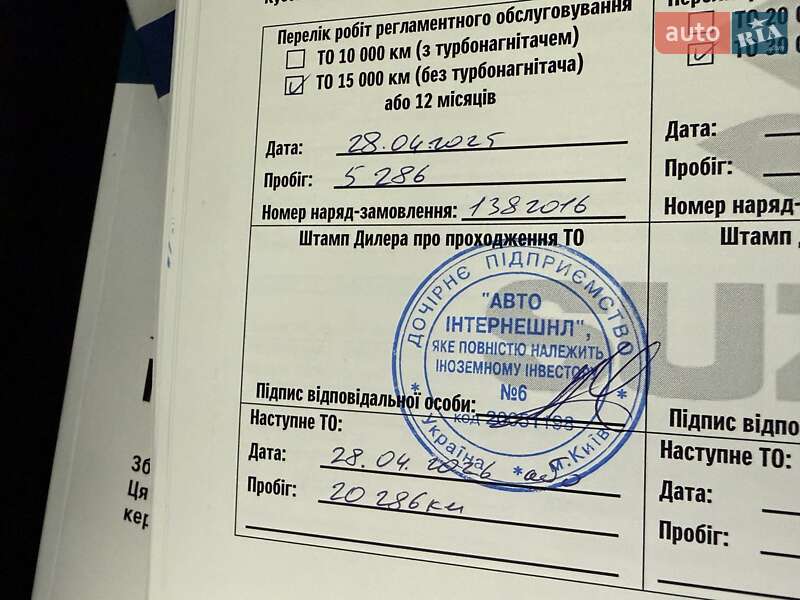 Перелік робіт регламентного обслуговування
ТО 10 000 км (з турбонагнітачем)
ТО 15 000 км (без турбонагнітача)
або 12 місяців
Дата: 28.04.2025
Пробіг: 5 286
Номер наряд-замовлення: 1382016
Штамп Дилера про проходження ТО
ДОЧІРНЄ ПІДПРИЄМСТВО
"АВТО
ІНТЕРНЕШНЛ",
ЯКЕ ПОВНІСТЮ НАЛЕЖИТЬ
ІНОЗЕМНОМУ ІНВЕСТОРУ
№6
код
Україна * м.Київ
Підпис відповідальної особи:
Наступне ТО:
Дата: 28.04.2026 або
Пробіг: 20 286 км
auto RIA .com
ТО 20
ТО 30
Дата:
Пробіг:
Номер наряд-
Штамп
SUZ
Підпис відпо
Наступне ТО:
Дата:
Пробіг:
Зб
Ця
кер